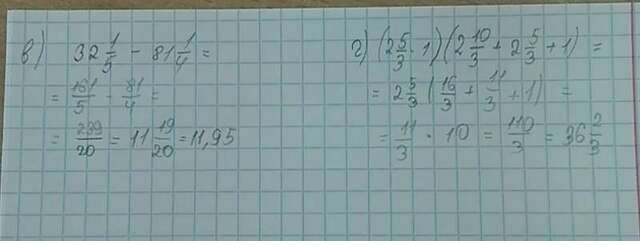 в) 32 1/5 - 81 1/4 =
= 161/5 - 81/4 =
= 239/20 = 11 19/20 = 11,95
г) (2 5/3 · 1) (2 10/3 + 2 5/3 + 1) =
= 2 5/3 (16/3 + 11/3 + 1) =
= 11/3 · 10 = 110/3 = 36 2/3